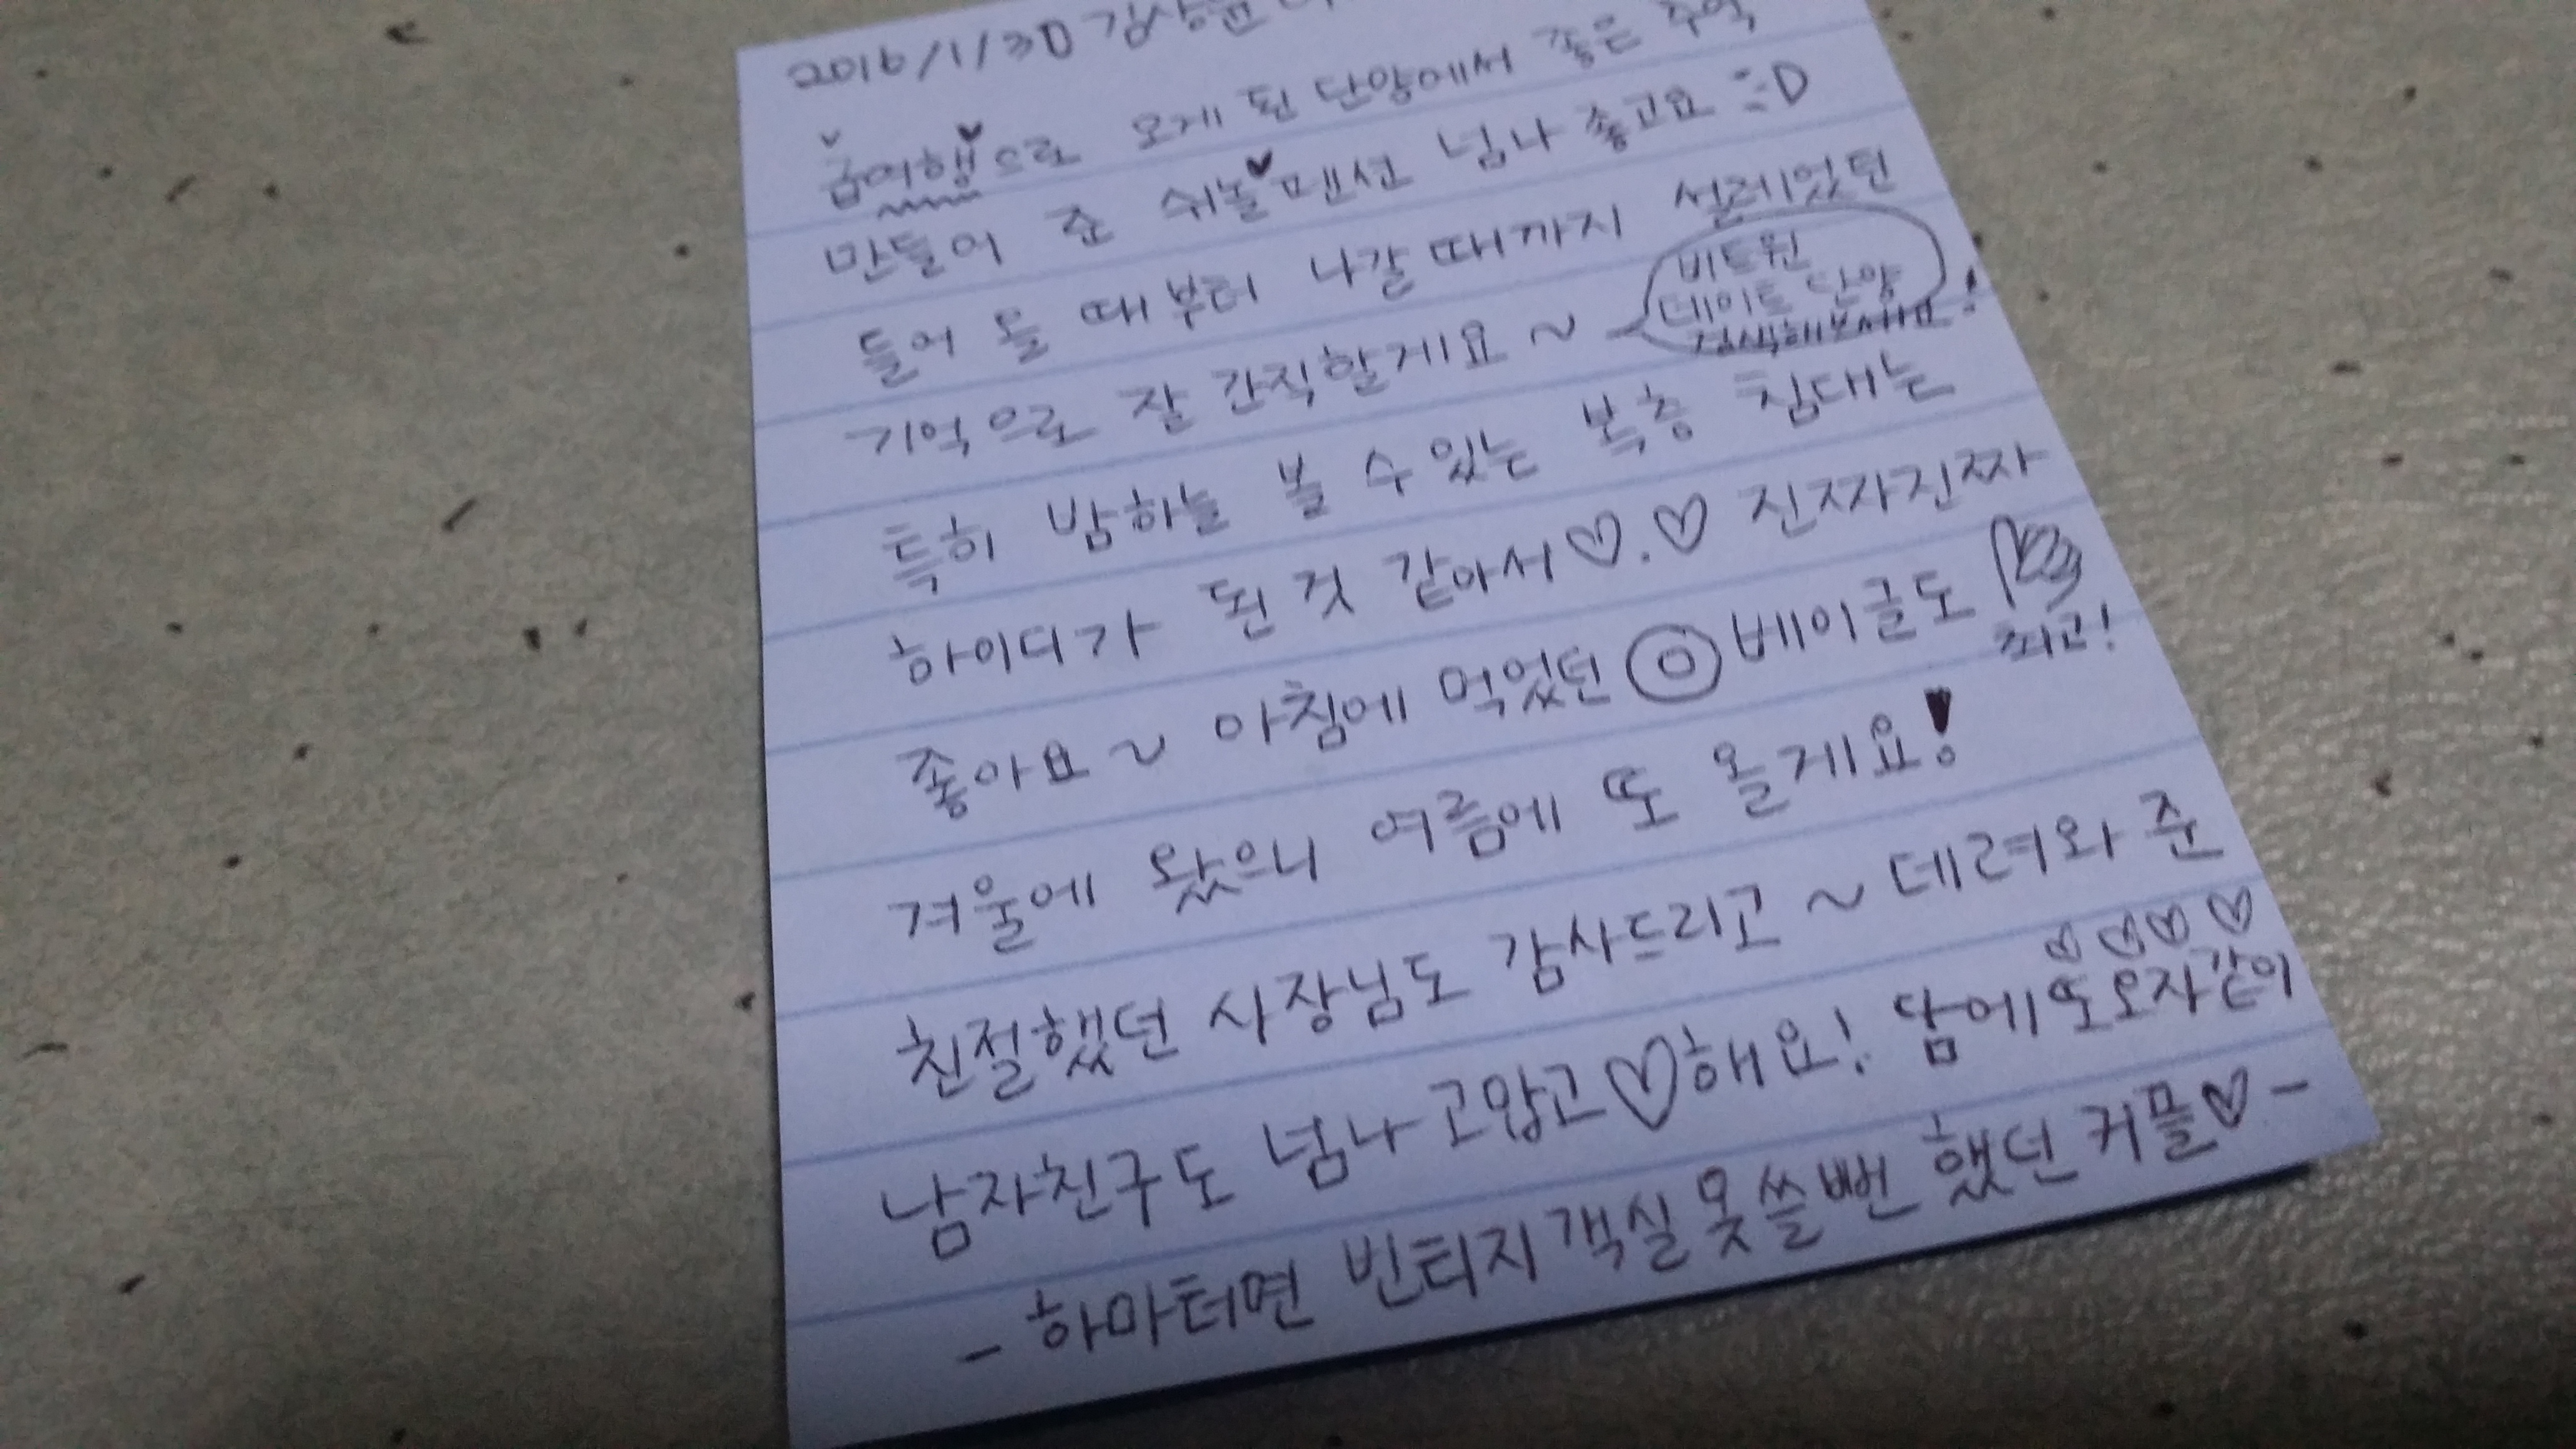 2016/1/30 김상
꿈여행으로 오게 된 단양에서 좋은 추억
만들어 준 쉬놀♥펜션 넘나 좋고요 :D
들어 올 때부터 나갈 때까지 설레었던
기억으로 잘 간직할게요~
비트윈
데이트 단양
검색해보세요!
특히 밤하늘 볼 수 있는 복층 침대는
하이디가 된 것 같아서♡.♡ 진짜진짜
좋아요~ 아침에 먹었던 베이글도
최고!
겨울에 왔으니 여름에 또 올게요!
친절했던 사장님도 감사드리고~ 데려와 준
남자친구도 넘나 고맙고♡해요! 담에또오자같이
♡♡♡♡
- 하마터면 빈티지객실못쓸뻔 했던 커플♡ -